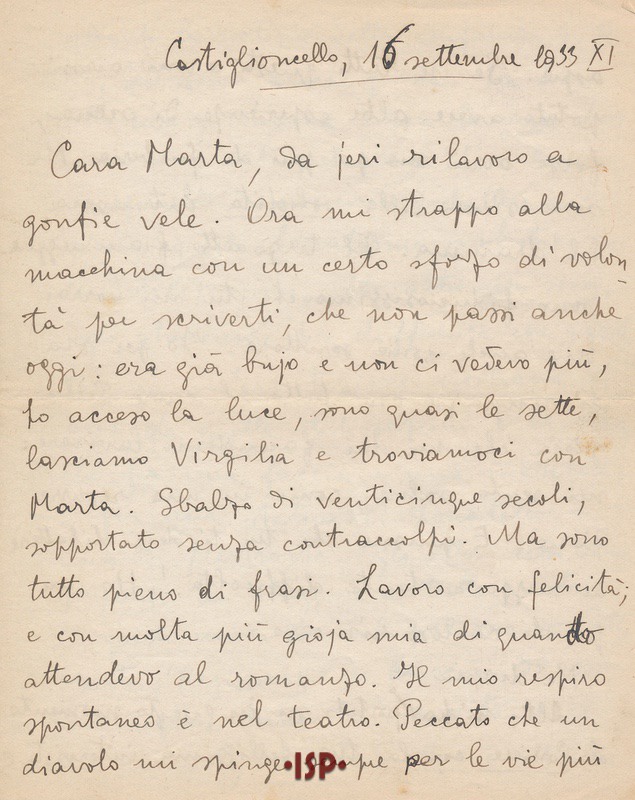 Castiglioncello, 16 settembre 1933 XI
Cara Marta, da jeri rilavoro a
gonfie vele. Ora mi strappo alla
macchina con un certo sforzo di volon-
tà per scriverti, che non passi anche
oggi: era già bujo e non ci vedevo più,
ho acceso la luce, sono quasi le sette,
lasciamo Virgilia e troviamoci con
Marta. Sbalzo di venticinque secoli,
sopportato senza contraccolpi. Ma sono
tutto pieno di frasi. Lavoro con felicità;
e con molta più gioja mia di quando
attendevo al romanzo. Il mio respiro
spontaneo è nel teatro. Peccato che un
diavolo mi spinge per le vie più
•ISP•